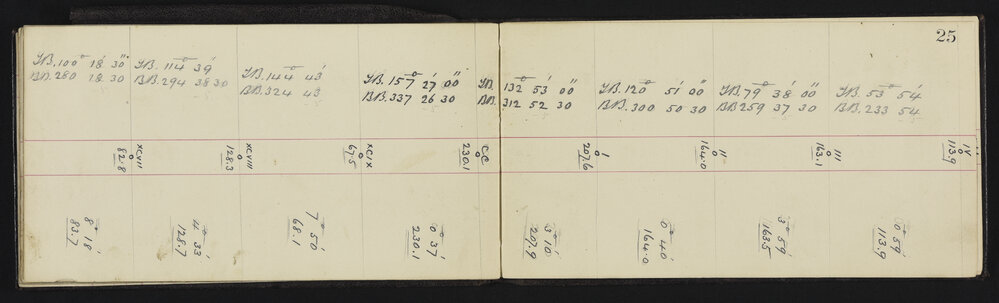 25
FB. 100° 18' 30"
BB. 280 18 30
FB. 114° 39'
BB. 294 38 30
FB. 144° 43'
BB. 324 43
FB. 157° 27' 00"
BB. 337 26 30
FB. 132° 53' 00"
BB. 312 52 30
FB. 120° 51' 00"
BB. 300 50 30
FB. 79° 38' 00"
BB 259 37 30
FB. 53° 54'
BB. 233 54
XCVII
82.8
XCVIII
128.3
XCIX
67.5
CC
230.1
I
207.6
II
164.0
III
163.1
IV
113.9
8° 18'
83.7
4° 33'
128.7
7° 50'
68.1
0° 37'
230.1
3° 10'
207.9
0° 40'
164.0
3° 59'
163.5
0° 59'
113.9